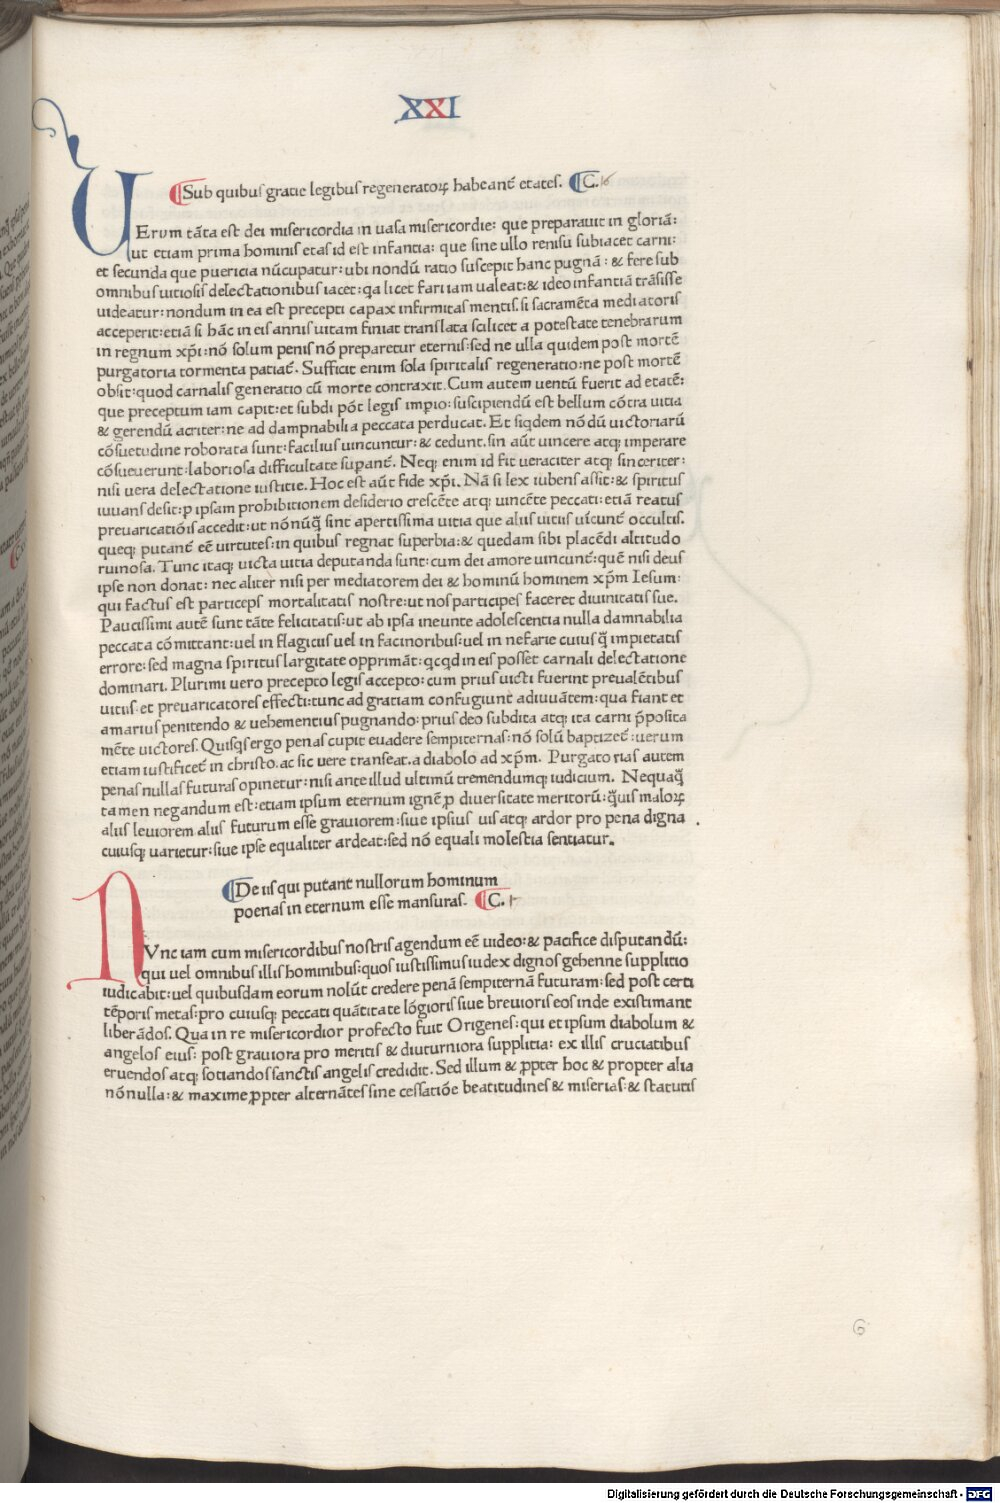 XXI
Sub quibus gratie legibus regeneratoꝝ habeant̄ etates. C. 16
UErum tãta est dei misericordia in uasa misericordie: que preparauit in gloriã:
ut etiam prima hominis etas id est infantia: que sine ullo renisu subiacet carni:
et secunda que puericia nũcupatur: ubi nondũ ratio suscepit hanc pugnã: & fere sub
omnibus uitiosis delectationibus iacet: qa licet fari iam ualeat: & ideo infantiã trãsisse
uideatur: nondum in ea est precepti capax infirmitas mentis. si sacramẽta mediatoris
acceperit: etiã si hãc in eis annis uitam finiat translata scilicet a potestate tenebrarum
in regnum xp̃i: nõ solum penis nõ preparetur eternis: sed ne ulla quidem post mortẽ
purgatoria tormenta patiat̄. Sufficit enim sola spiritalis regeneratio: ne post mortẽ
obsit: quod carnalis generatio cũ morte contraxit. Cum autem uentũ fuerit ad etatẽ:
que preceptum iam capit: et subdi põt legis imp̱io: suscipiendũ est bellum cõtra uitia
& gerendũ acriter: ne ad dampnabilia peccata perducat. Et siqdem nõdũ uictoriarũ
cõsuetudine roborata sunt: facilius uincuntur: & cedunt. sin aũt uincere atqꝫ imperare
cõsueuerunt: laboriosa difficultate sup̱ant̄. Neqꝫ enim id fit ueraciter atqꝫ sinceriter:
nisi uera delectatione iustitie. Hoc est aũt fide xp̃i. Nã si lex iubens assit: & spiritus
iuuans desit: p̱ ipsam prohibitionem desiderio crescẽte atqꝫ uincẽte peccati: etiã reatus
preuaricatiõis accedit: ut nõnũq̃ sint apertissima uitia que aliis uitiis uĩcunt̄ occultis.
queqꝫ putant̄ eẽ uirtutes: in quibus regnat superbia: & quedam sibi placẽdi altitudo
ruinosa. Tunc itaqꝫ uicta uitia deputanda sunt: cum dei amore uincunt̄: quẽ nisi deus
ipse non donat: nec aliter nisi per mediatorem dei & hominũ hominem xp̃m Iesum:
qui factus est particeps mortalitatis nostre: ut nos participes faceret diuinitatis sue.
Paucissimi autẽ sunt tãte felicitatis: ut ab ipsa ineunte adolescentia nulla damnabilia
peccata cõmittant: uel in flagiciis uel in facinoribus: uel in nefarie cuiusq̃ impietatis
errore: sed magna spiritus largitate opprimãt: qcqd in eis posset carnali delectatione
dominari. Plurimi uero precepto legis accepto: cum prius uicti fuerint preualẽtibus
uitiis: et preuaricatores effecti: tunc ad gratiam confugiunt adiuuãtem: qua fiant et
amarius penitendo & uehementius pugnando: prius deo subdita atqꝫ ita carni p̃posita
mẽte uictores. Quisqs ergo penas cupit euadere sempiternas: nõ solũ baptizet̄: uerum
etiam iustificet̄ in christo. ac sic uere transeat. a diabolo ad xp̃m. Purgatorias autem
penas nullas futuras opinetur: nisi ante illud ultimũ tremendumqꝫ iudicium. Nequaq̃
tamen negandum est: etiam ipsum eternum ignẽ p̱ diuersitate meritorũ: q̃uis maloꝝ
aliis leuiorem aliis futurum esse grauiorem: siue ipsius uis atqꝫ ardor pro pena digna
cuiusqꝫ uarietur: siue ipse equaliter ardeat: sed nõ equali molestia sentiatur.
De iis qui putant nullorum hominum
poenas in eternum esse mansuras. C. 17
NVnc iam cum misericordibus nostris agendum eẽ uideo: & pacifice disputandũ:
qui uel omnibus illis hominibus: quos iustissimus iudex dignos gehenne supplitio
iudicabit: uel quibusdam eorum nolũt credere penã sempiternã futuram: sed post certi
tẽporis metas: pro cuiusqꝫ peccati quãtitate lõgioris siue breuioris eos inde existimant
liberãdos. Qua in re misericordior profecto fuit Origenes: qui et ipsum diabolum &
angelos eius: post grauiora pro meritis & diuturniora supplitia: ex illis cruciatibus
eruendos atqꝫ sotiandos sanctis angelis credidit. Sed illum & p̱pter hoc & propter alia
nõnulla: & maxime p̱pter alternãtes sine cessatiõe beatitudines & miserias: & statutis
6
Digitalisierung gefördert durch die Deutsche Forschungsgemeinschaft - DFG